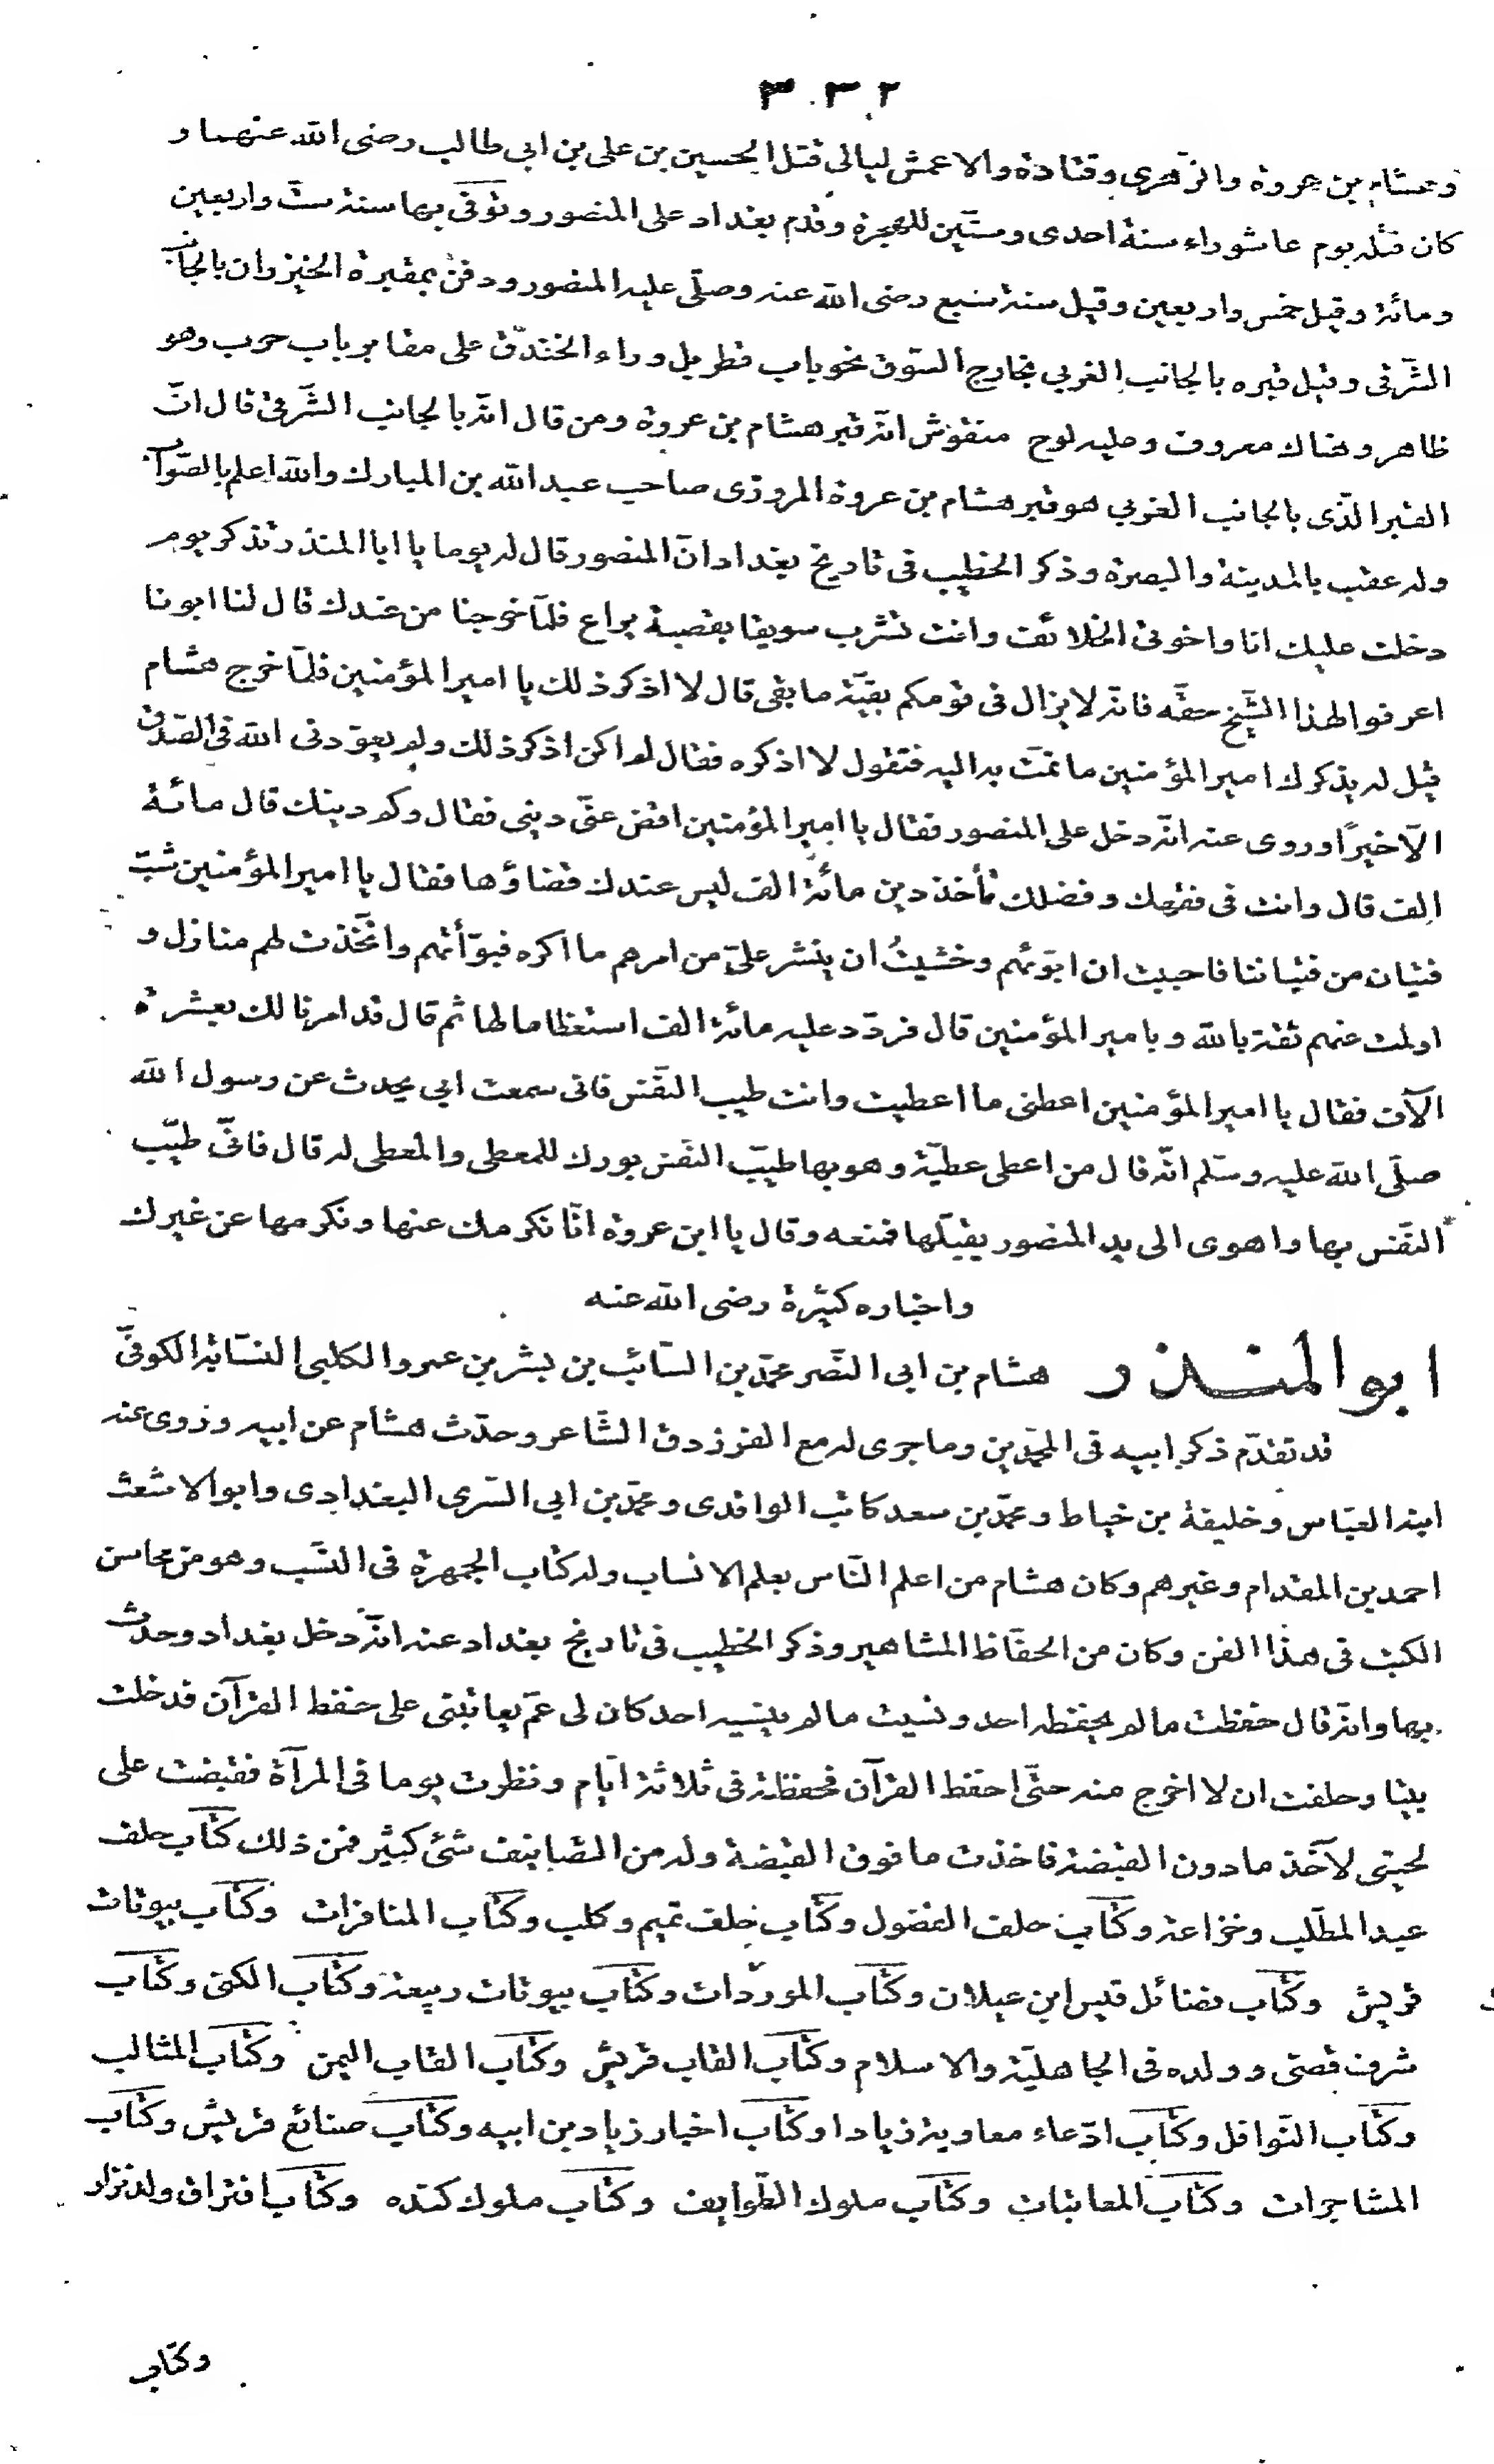 ٣٣٢
وهشام بن عروة والزّهرى وقتادة والاعمش ليالى قتل الحسين بن على بن ابى طالب رضى الله عنهما و
كان قتله يوم عاشوراء سنة احدى وستّين للهجرة وقدم بغداد على المنصور وتوفّى بها سنة ستّ واربعين
ومائة وقيل خمس واربعين وقيل سنة سبع رضى الله عنه وصلّى عليه المنصور ودفن بمقبرة الخيزران بالجانب
الشّرقى وقيل قبره بالجانب الغربي خارج السّوق نحو باب قطربل وراء الخندق على مقابر باب حرب وهو
ظاهر وهناك معروف وعليه لوح منقوش انّه قبر هشام بن عروة ومن قال انّه بالجانب الشّرقى قال انّ
القبر الّذى بالجانب الغربي هو قبر هشام بن عروة المروزى صاحب عبد الله بن المبارك والله اعلم بالصّواب
وله عقب بالمدينة والبصرة وذكر الخطيب فى تاريخ بغداد انّ المنصور قال له يوما يا ابا المنذر تذكر يوم
دخلت عليك انا واخوتى الخلائف وانت تشرب سويقا بقصبة يراع فلمّا خرجنا من عندك قال لنا ابونا
اعرفوا لهذا الشّيخ حقّه فانّه لا يزال فى قومكم بقيّة ما بقى قال لا اذكر ذلك يا امير المؤمنين فلمّا خرج هشام
قيل له يذكرك امير المؤمنين ما تمتّ به اليه فتقول لا اذكره فقال لم اكن اذكر ذلك ولم يعوّدنى الله فى الصّدق
الّا خيرًا وروى عنه انّه دخل على المنصور فقال يا امير المؤمنين اقض عنّى دينى فقال وكم دينك قال مائة
الف قال وانت فى فقهك وفضلك تأخذ دين مائة الف ليس عندك قضاؤها فقال يا امير المؤمنين شبّ
فتيان من فتياننا فاحببت ان ابوّئهم وخشيتُ ان ينتشر علىّ من امرهم ما اكره فبوّأتهم واتّخذت لهم منازل و
اولمت عنهم ثقة بالله وبامير المؤمنين قال فردّد عليه مائة الف استعظاما لها ثم قال قد امرنا لك بعشرة
الآف فقال يا امير المؤمنين اعطنى ما اعطيت وانت طيب النّفس فانى سمعت ابى يحدث عن رسول الله
صلّى الله عليه وسلّم انّه قال من اعطى عطيّة وهو بها طيّب النّفس بورك للمعطى والمعطى له قال فانّى طيّب
النّفس بها واهوى الى يد المنصور يقبّلها فمنعه وقال يا ابن عروة انّا نكرمك عنها ونكرمها عن غيرك
واخباره كثيرة رضى الله عنه
ابو المنذر هشام بن ابى النّصر محمّد بن السّائب بن بشر بن عمرو الكلبى النسّابة الكوفىّ
قد تقدّم ذكر ابيه فى المحمّدين وما جرى له مع الفرزدق الشّاعر وحدّث هشام عن ابيه وروى عنه
ابنه العبّاس وخليفة بن خياط ومحمّد بن سعد كاتب الواقدى ومحمّد بن ابى السّرى البغدادى وابو الاشعث
احمد بن المقدام وغيرهم وكان هشام من اعلم النّاس بعلم الانساب وله كتاب الجمهرة فى النّسب وهو من محاسن
الكتب فى هذا الفن وكان من الحفّاظ المشاهير وذكر الخطيب فى تاريخ بغداد عنه انّه دخل بغداد وحدّث
بها وانّه قال حفظت ما لم يحفظه احد ونسيت ما لم ينسيه احد كان لى عمّ يعاتبنى على حفظ القرآن فدخلت
بيتا وحلفت ان لا اخرج منه حتّى احفظ القرآن فحفظته فى ثلاثة ايّام ونظرت يوما فى المرآة فقبضت على
لحيتى لآخذ ما دون القبضة فاخذت ما فوق القبضة وله من التّصانيف شئ كثير فمن ذلك كتاب حلف
عبد المطّلب وخزاعة وكتاب حلف الفضول وكتاب حلف تميم وكلب وكتاب المنافرات وكتاب بيوتات
قريش وكتاب فضائل قيس ابن عيلان وكتاب الموردات وكتاب بيوتات ربيعة وكتاب الكنى وكتاب
شرف قصىّ وولده فى الجاهليّة والاسلام وكتاب القاب قريش وكتاب القاب اليمن وكتاب المثالب
وكتاب النّوافل وكتاب ادّعاء معاوية زيادا وكتاب اخبار زياد بن ابيه وكتاب صنائع قريش وكتاب
المشاجرات وكتاب المعاتبات وكتاب ملوك الطّوايف وكتاب ملوك كنده وكتاب افتراق ولد نزار
وكتاب